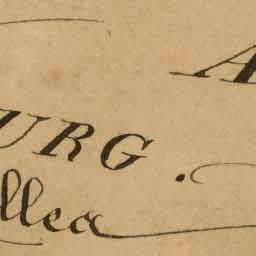 A
URG.
llea